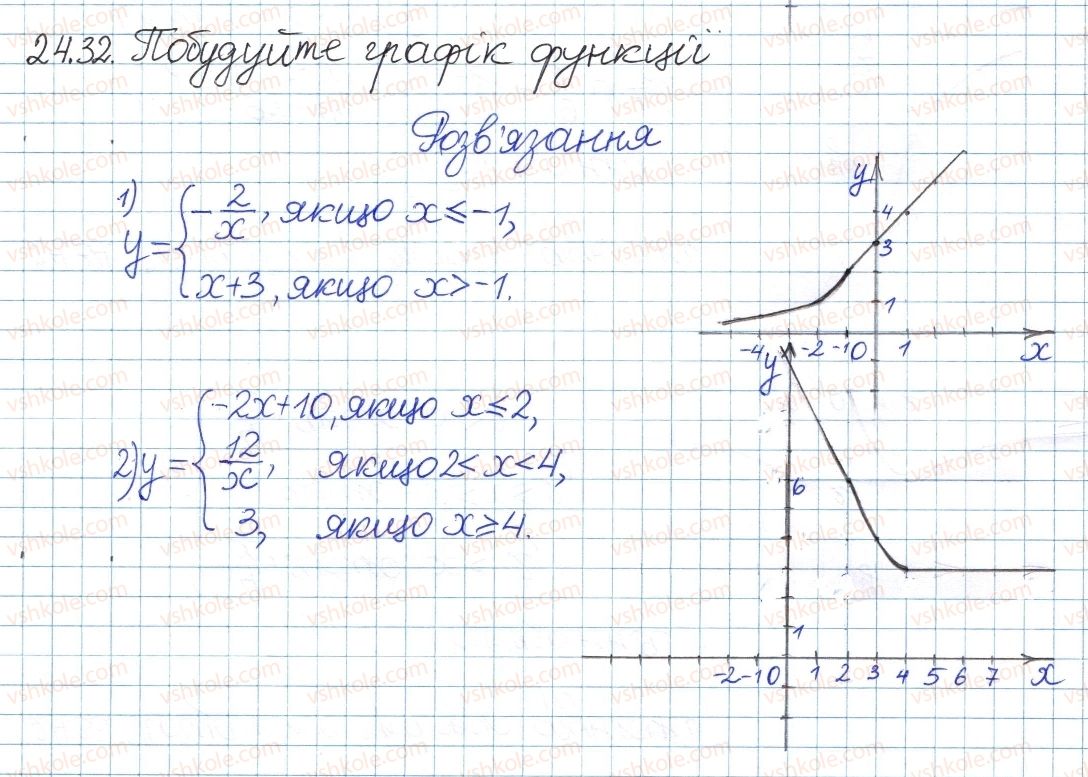 24.32. Побудуйте графік функції
Розв'язання
1) y = { -2/x, якщо x ≤ -1,
x+3, якщо x > -1.
y
4
3
1
-4 -2 -1 0 1 x
2) y = { -2x+10, якщо x ≤ 2,
12/x, якщо 2 < x < 4,
3, якщо x ≥ 4.
y
6
1
-2 -1 0 1 2 3 4 5 6 7 x
vshkole.com